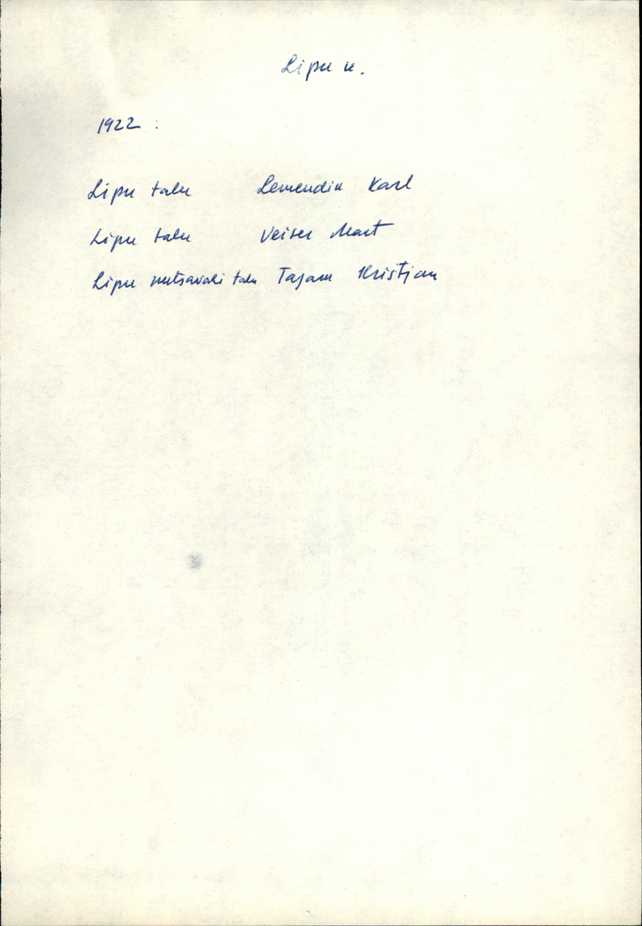 Lipu k.
1922 :
Lipu talu Lemendik Karl
Lipu talu Veiser Mart
Lipu metsavahi talu Tajam Kristjan